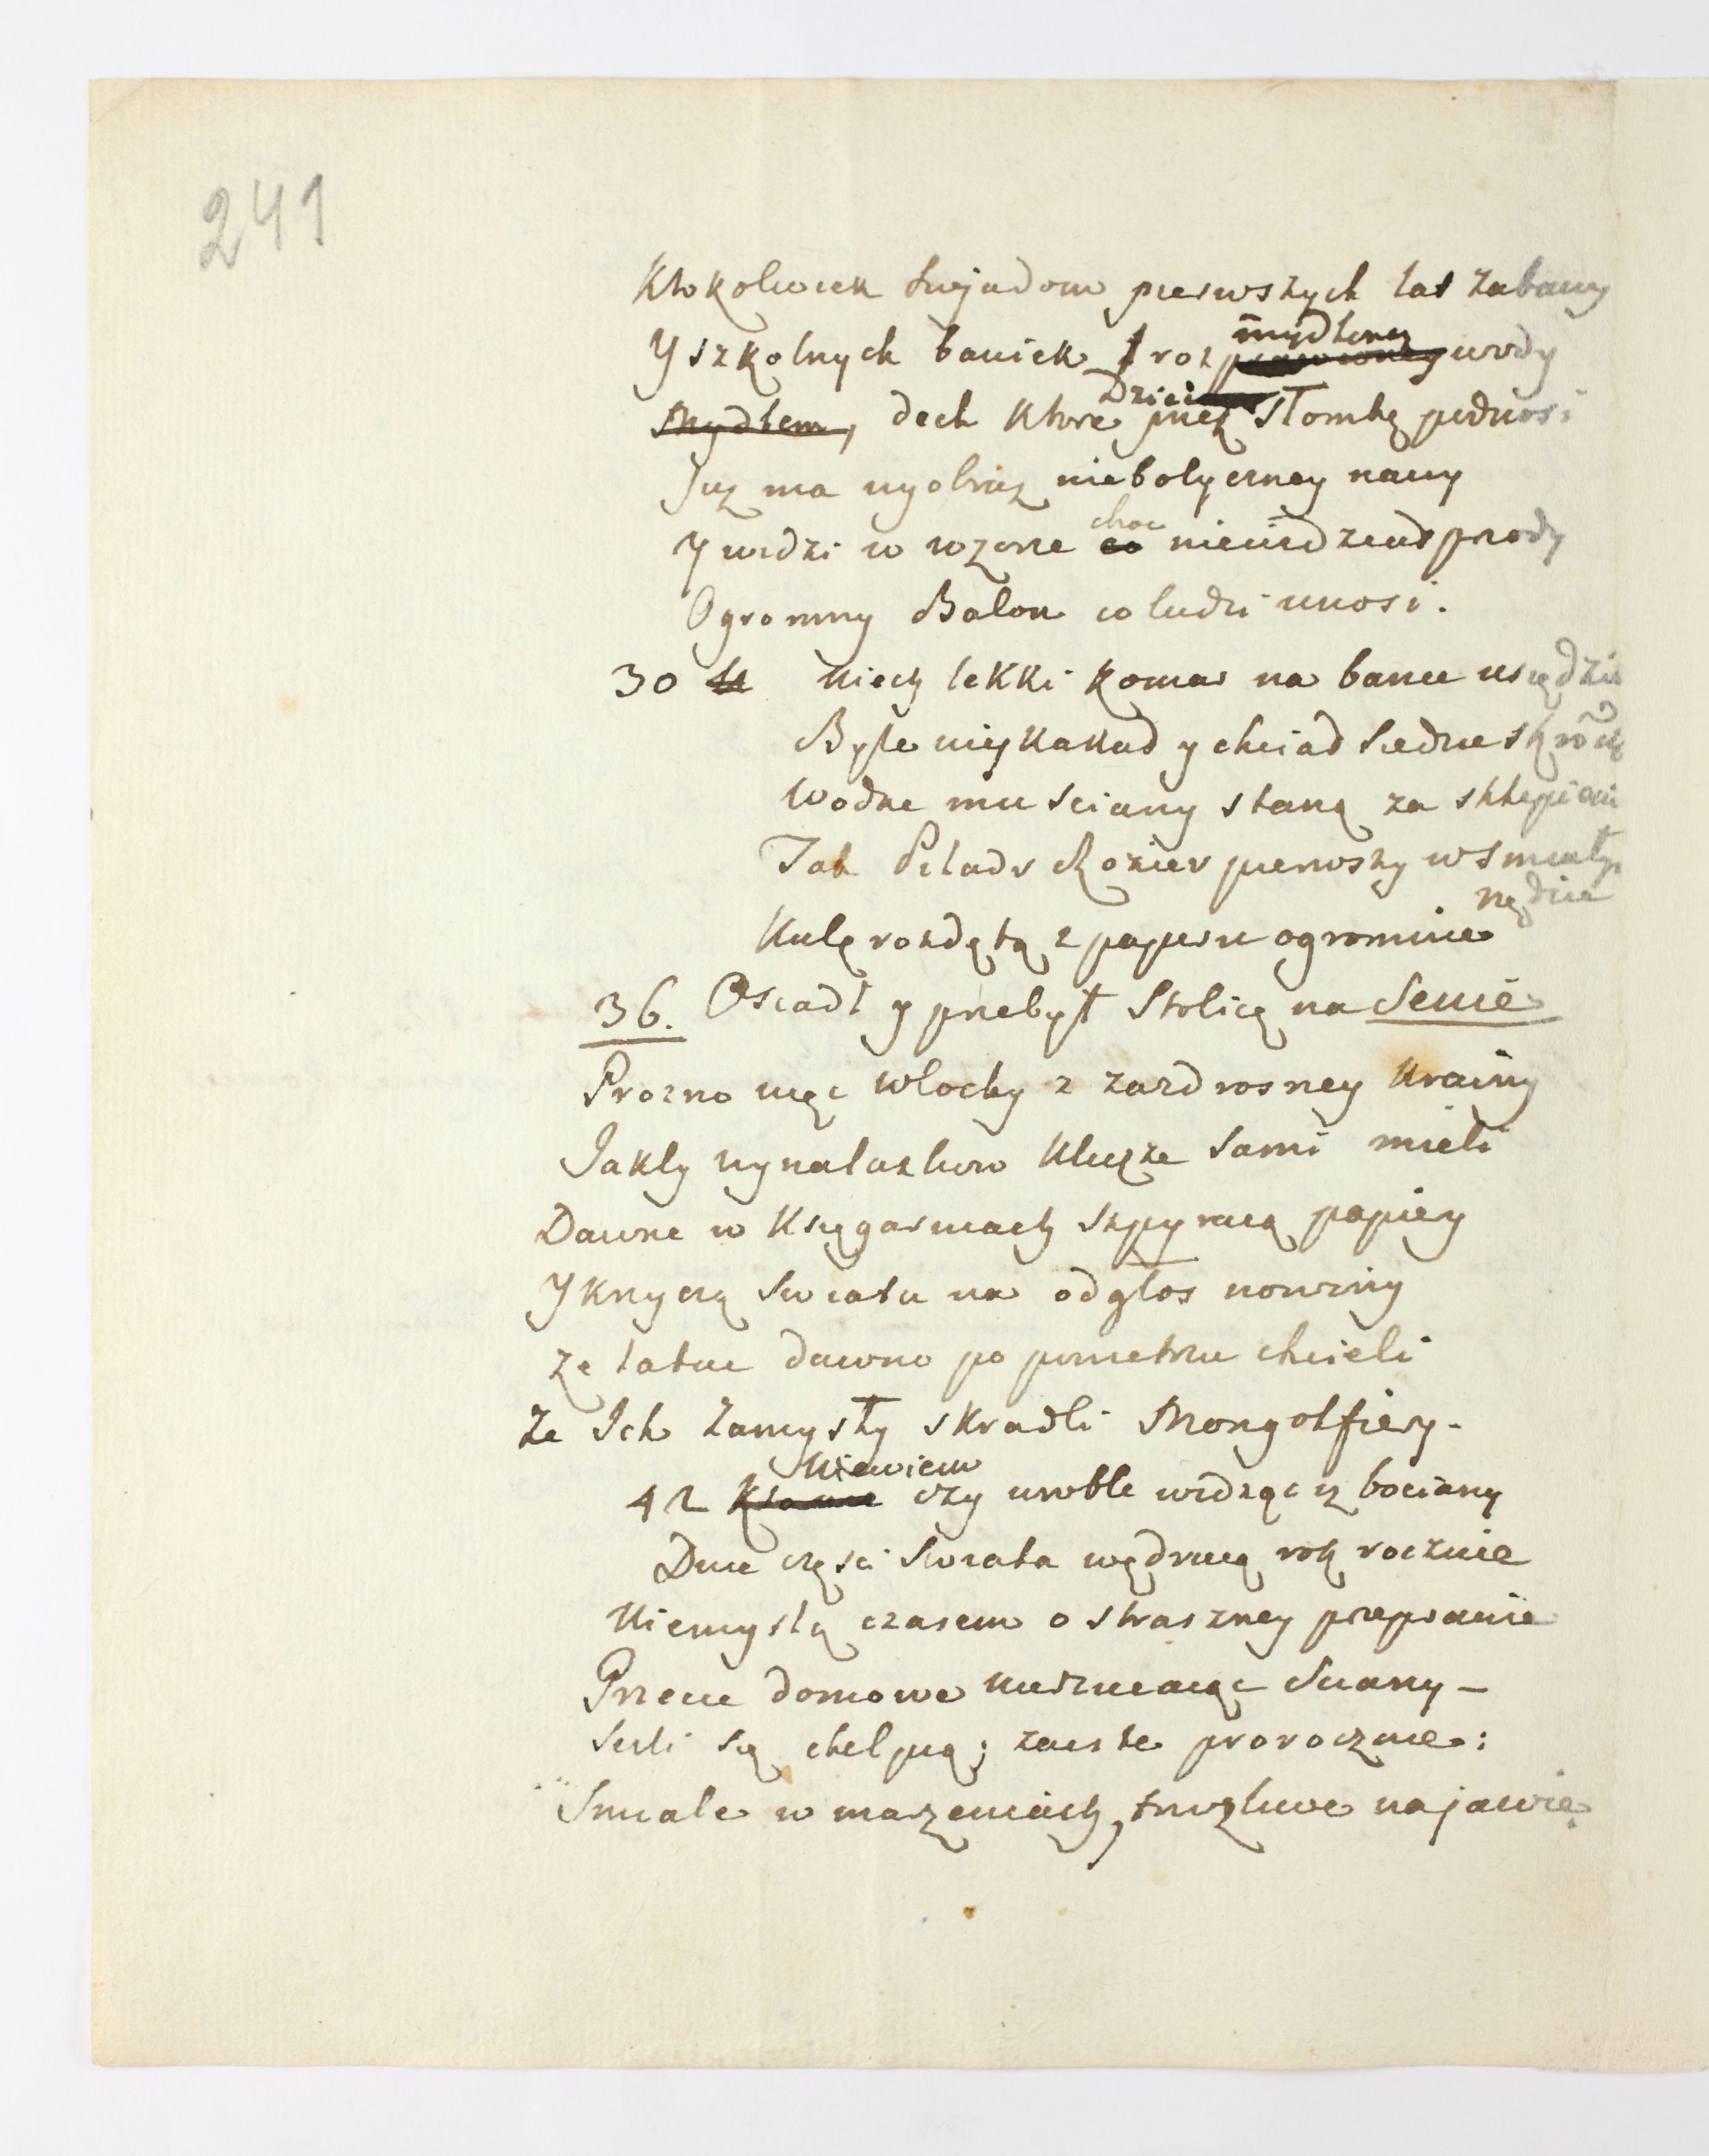 241
Ktokolwiek swiadom pierwszych lat zabawy
Y szkolnych baniek z rozmydloney wody
Mydłem, dech ktore Dzieci przez słomkę podnosi
Juz ma wyobraz niebotyczney nawy
Y widzi w wzorze choc niewidział przody
Ogromny Balon co ludzi unosi.
30 Niech lekki komar na bance usiędzie
Wodne mu sciany staną za sklepieni
Tak Pilatr Rozier pierwszy w smiałym
pędzie
Kulę rozdętą z papieru ogromnie
36. Osiadł y przebył Stolicę na Senie
Prozno więc Włochy z zazdrosney krainy
Jakby wynalazkow klucze sami mieli
Dawne w Księgarniach szpyraią papiery
Y krzyczą swiatu na odgłos nowiny
Ze latac dawno po powietrzu chcieli
Ze Ich zamysły skradli Mongolfiery.
42 Niewiem czy wroble widząc iż bociany
Dwie częsci swiata wędruią rok rocznie
Niemyslą czasem o straszney przeprawie
Przecie domowe nierzucaiąc sciany –
Jesli się chełpią; zawsze prorocznie:
Smiałe w marzeniach, trwożliwe na jawie